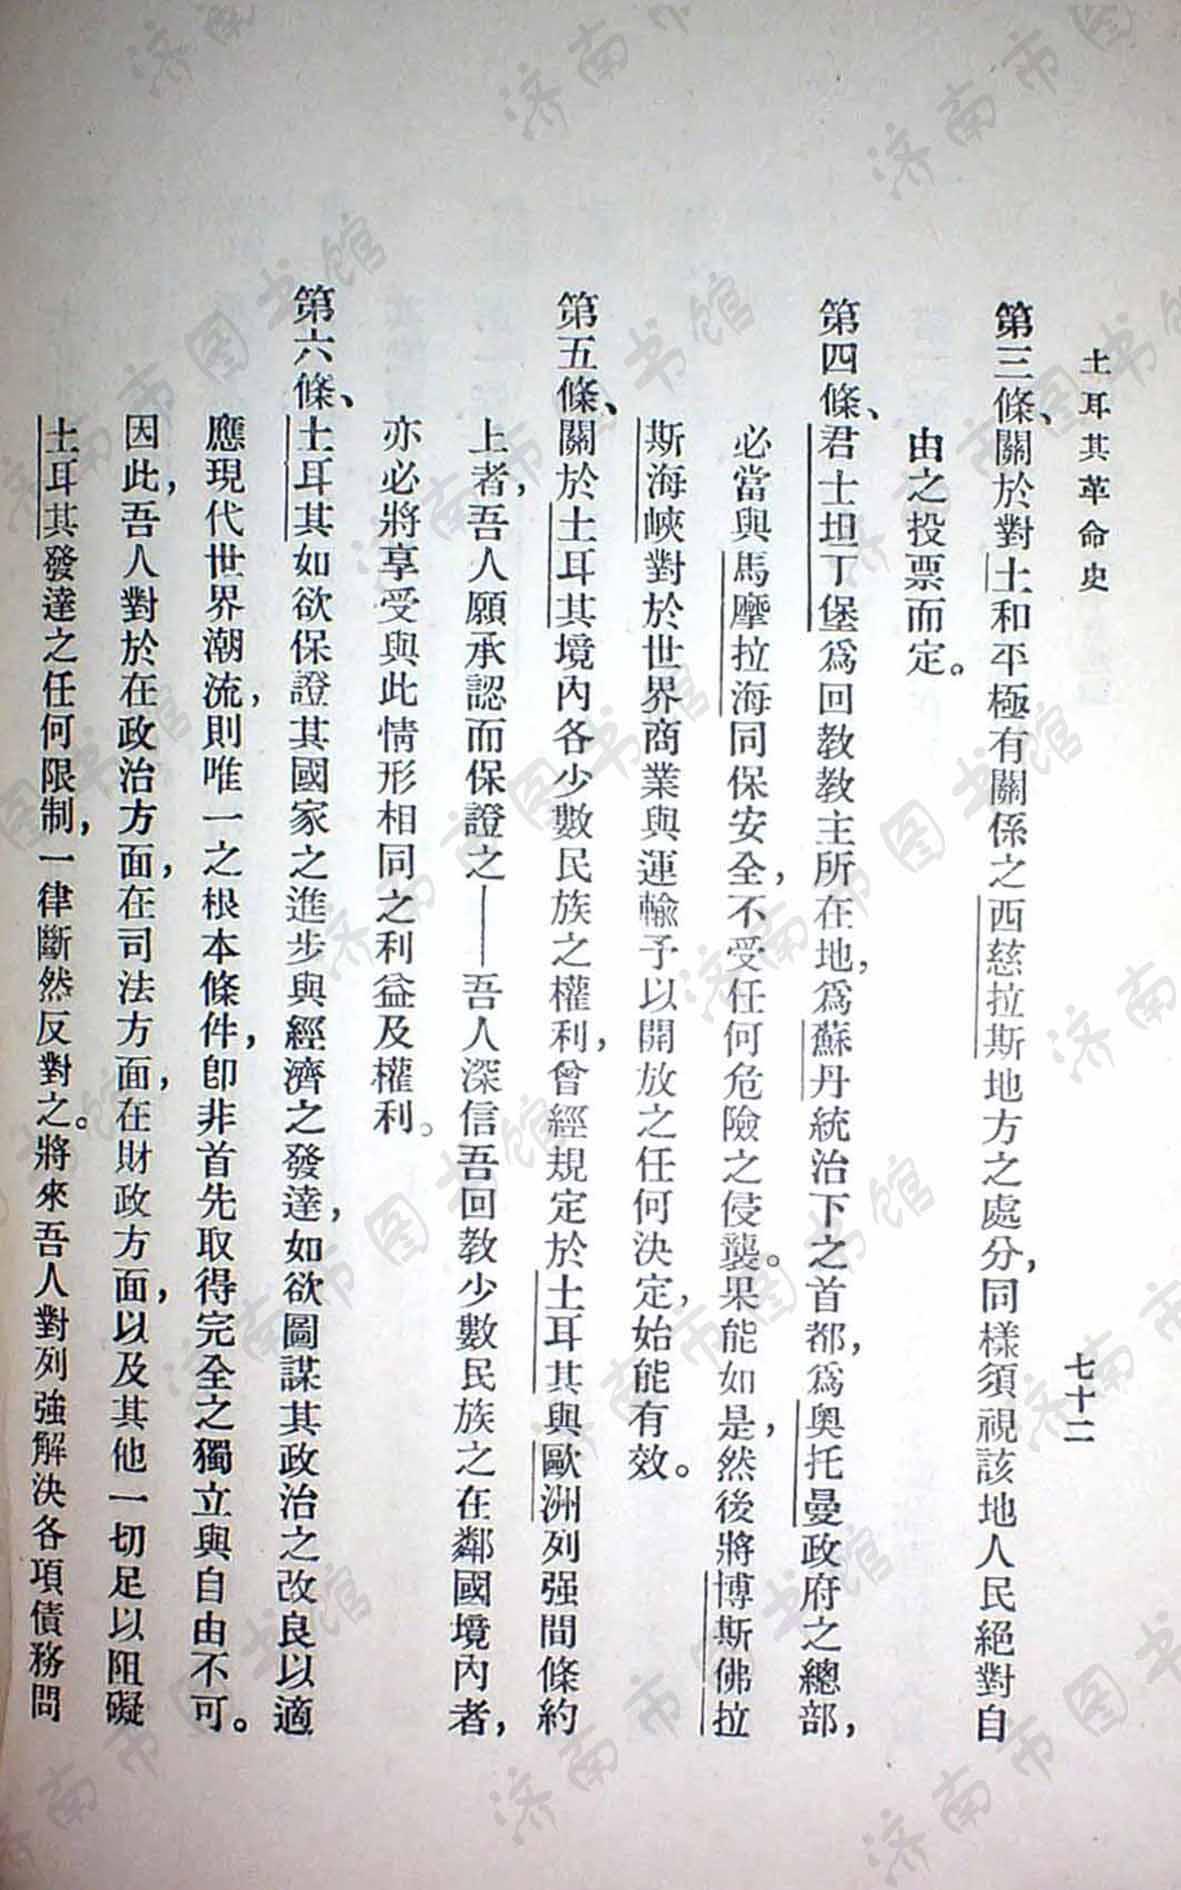 土耳其革命史
七十二
第三條、關於對土和平極有關係之西慈拉斯地方之處分，同樣須視該地人民絕對自
由之投票而定。
第四條、君士坦丁堡爲回教教主所在地，爲蘇丹統治下之首都，爲奧托曼政府之總部，
必當與馬摩拉海同保安全，不受任何危險之侵襲。果能如是，然後將博斯佛拉
斯海峽對於世界商業與運輸予以開放之任何決定，始能有效。
第五條、關於土耳其境內各少數民族之權利，曾經規定於土耳其與歐洲列强間條約
上者，吾人願承認而保證之——吾人深信吾回教少數民族之在鄰國境內者，
亦必將享受與此情形相同之利益及權利。
第六條、土耳其如欲保證其國家之進步與經濟之發達，如欲圖謀其政治之改良以適
應現代世界潮流，則唯一之根本條件，卽非首先取得完全之獨立與自由不可。
因此，吾人對於在政治方面，在司法方面，在財政方面，以及其他一切足以阻礙
土耳其發達之任何限制，一律斷然反對之。將來吾人對列強解決各項債務問
济南市图书馆